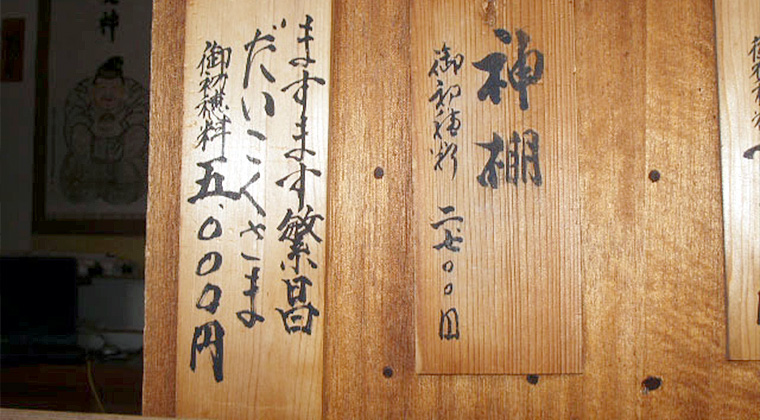 神棚
御初穂料 二七〇〇円
ますます繁昌
だいこくさま
御初穂料 五、〇〇〇円
神